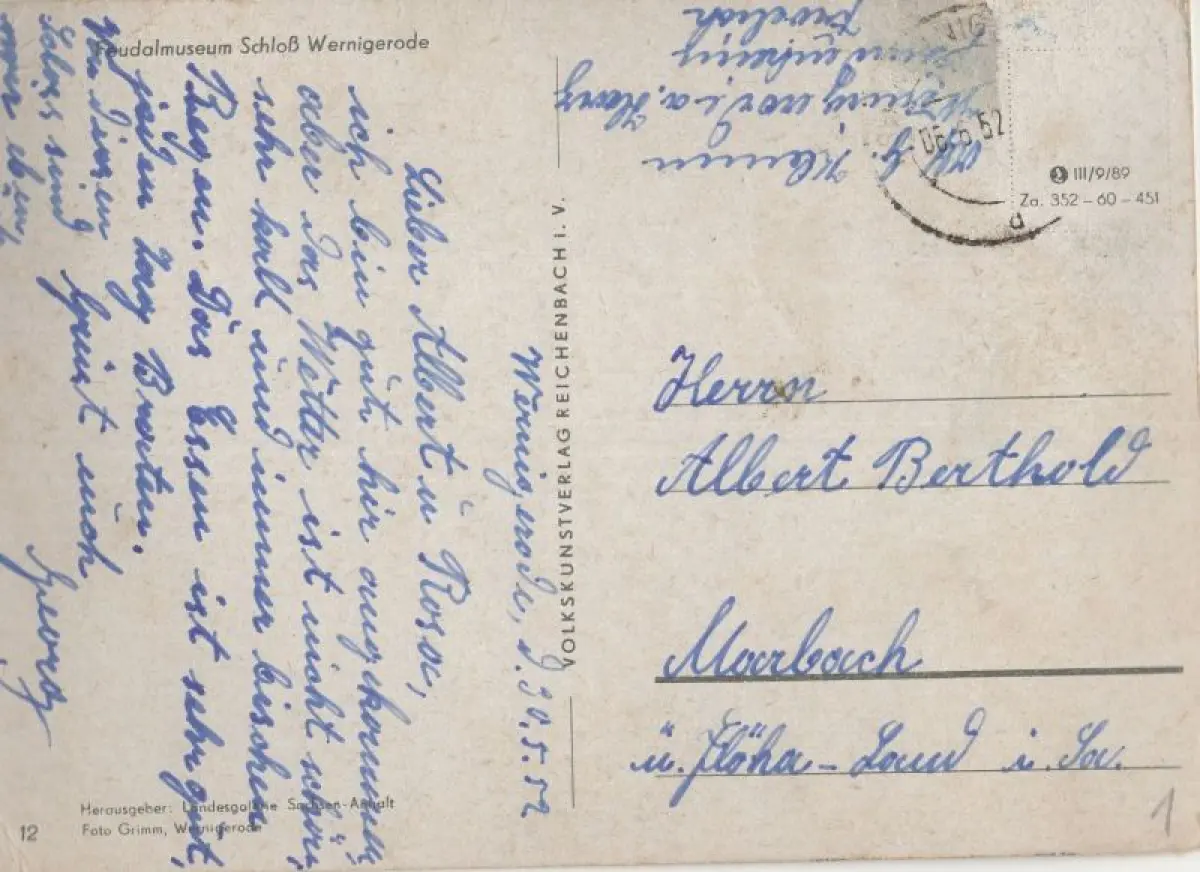 Feudalmuseum Schloß Wernigerode
Wernigerode, d. 30.5.52
Lieber Albert u Rosa,
ich bin gut hir angekommen
aber das Wetter ist nicht schön,
sehr kalt und immer bischen
Regen. Das Essen ist sehr gut,
jeden Tag Braten.
In diesem
Schloss sind
wir eben,
Grüst euch
Georg
Herausgeber: Landesgalerie Sachsen-Anhalt
Foto Grimm, Wernigerode
12
VOLKSKUNSTVERLAG REICHENBACH i. V.
i. a. Harz
06.6.52
III/9/89
Za. 352 – 60 – 451
d
Herrn
Albert Berthold
Marbach
ü. Flöha – Land i. Sa.
1